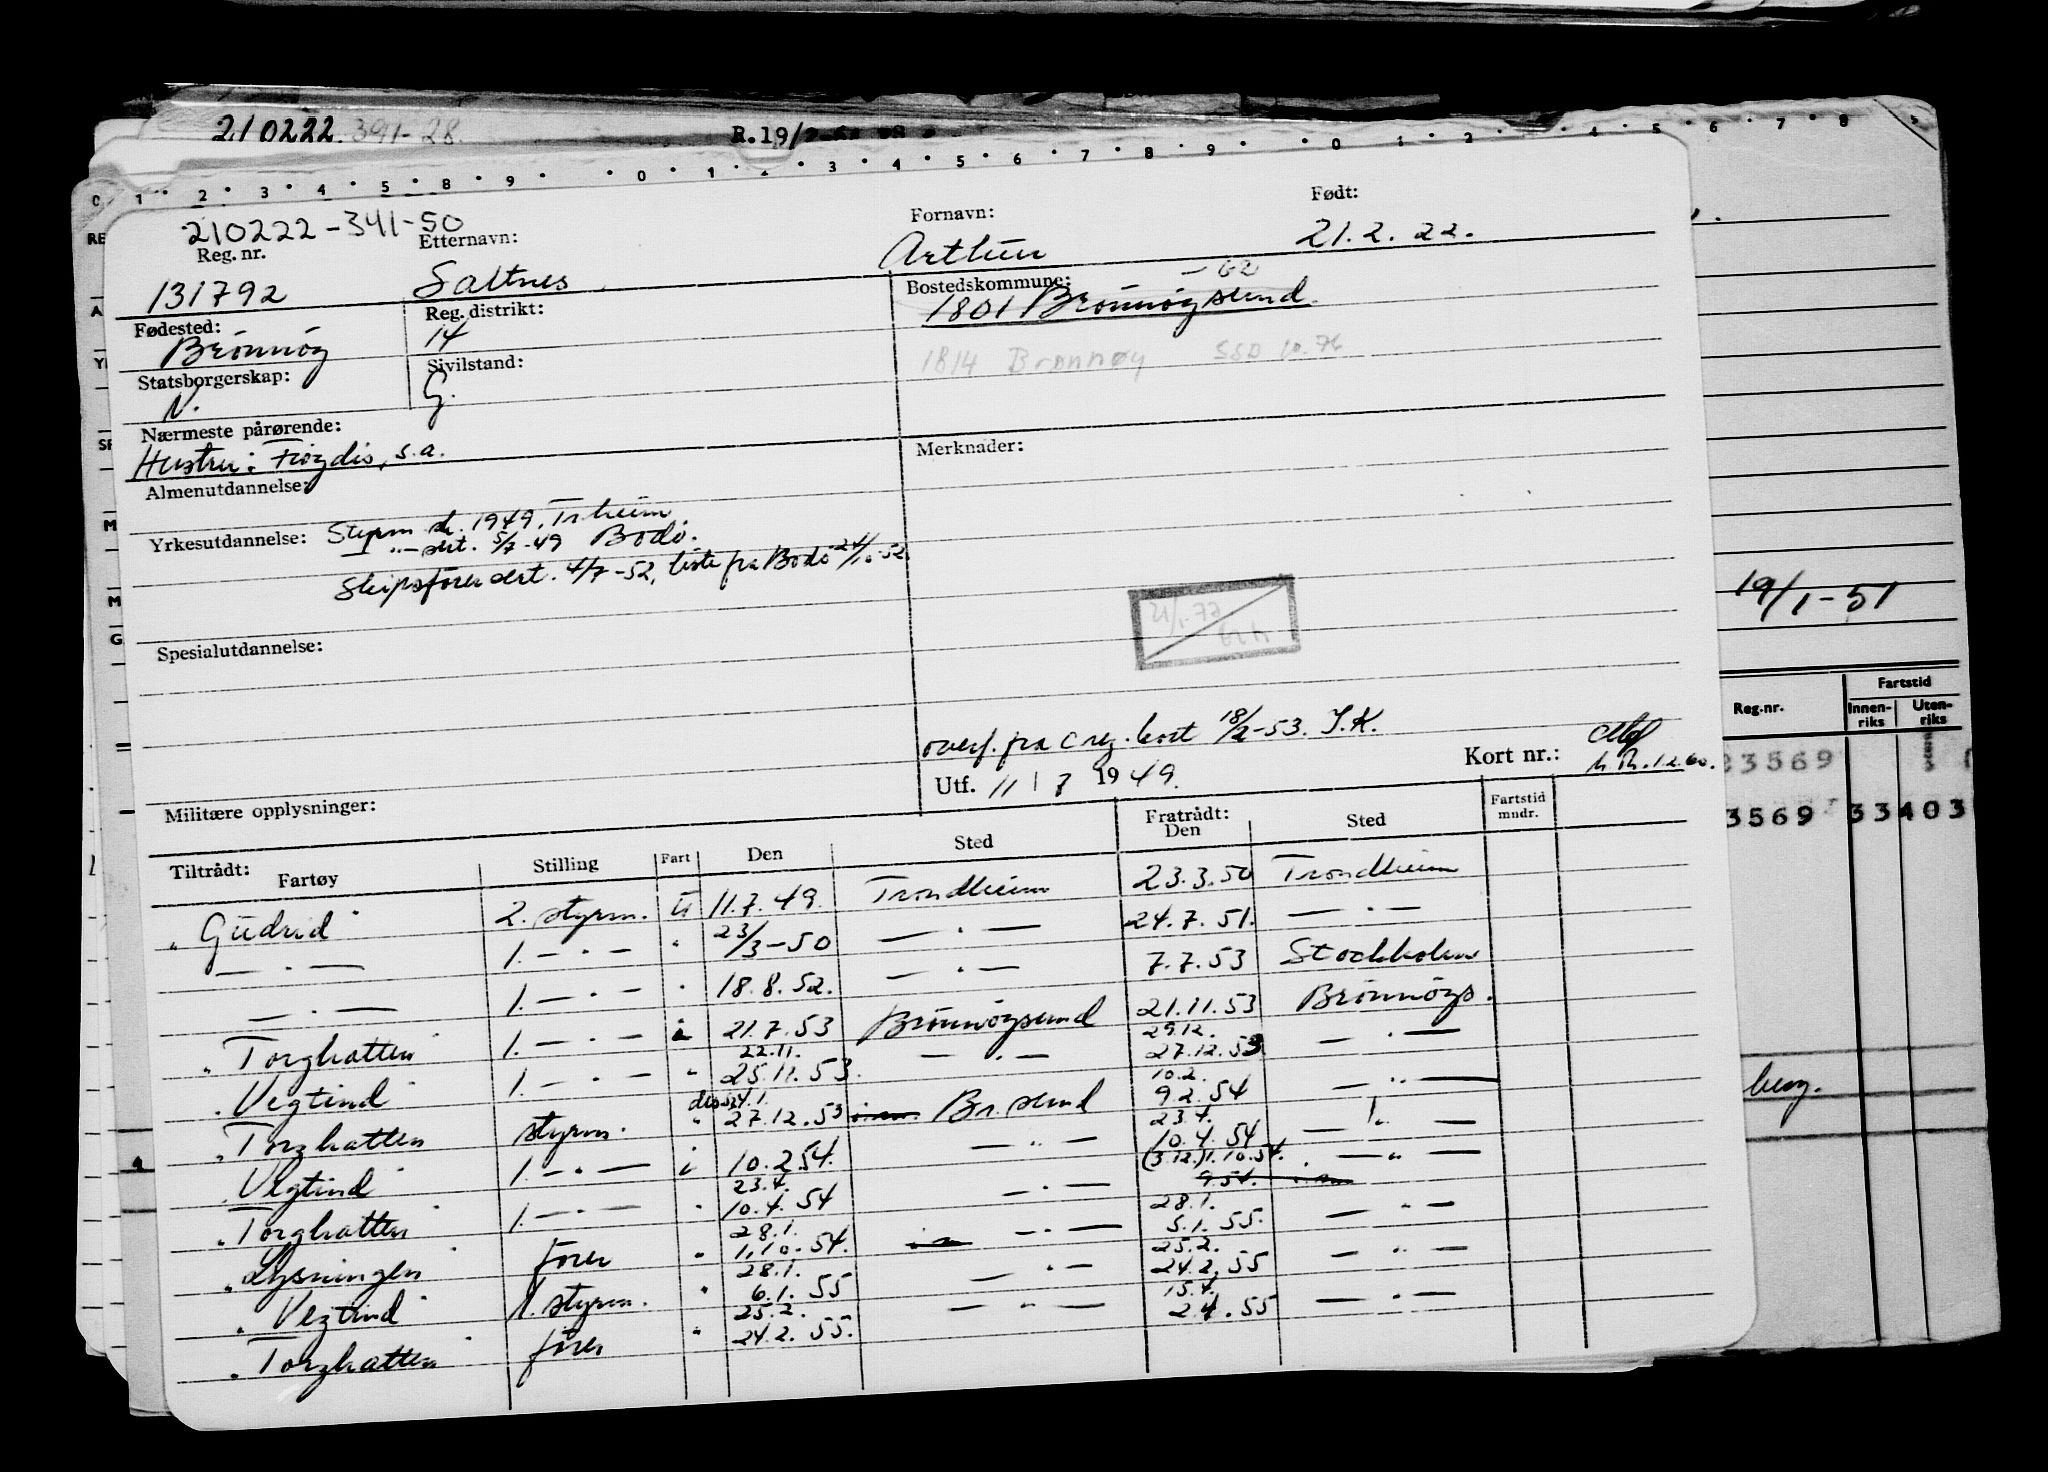 210222.391-28. R.19/
0 1 2 3 4 5 8 9 0 1 2 3 4 5 6 7 8 9 0 1 2 4 5 6 7 8
210222-341-50
Reg. nr. Etternavn: Fornavn: Født:
131792 Saltnes Arthur 21.2.22.
Fødested: Reg. distrikt: Bostedskommune: -62
Brønnøy 14 1801 Brønnøysund.
Statsborgerskap: Sivilstand: 1814 Brønnøy SSD 10.76
N. G.
Nærmeste pårørende: Merknader:
Hustru: Frøydis, s.a.
Almenutdannelse:
Yrkesutdannelse: Styrm sk. 1949. Tr.heim
-"- sert. 5/7-49 Bodø.
Skipsfører sert. 4/7-52, liste fra Bodø 24/10-52
21/1.72
19/1-51
Spesialutdannelse:
overf. fra c reg. kort 18/2-53. I.K.
Utf. 11/7 1949. Kort nr.:
Militære opplysninger:
Reg.nr. Fartstid
Innen-riks Uten-riks
23569
3569 33403
Tiltrådt: Fratrådt:
Fartøy Stilling Fart Den Sted Den Sted Fartstid mndr.
"Gudrid" 2. styrm. u 11.7.49. Trondheim 23.3.50 Trondheim
— " — 1. — " — " 23/3-50 — " — 24.7.51. — " —
— " — 1. — " — " 18.8.52. — " — 7.7.53 Stockholm
"Torghatten" 1. — " — i 21.7.53 Brønnøysund 21.11.53 Brønnøys.
22.11. 29.12.
"Vegtind" 1. — " — " 25.11.53. — " — 27.12.53 — " —
24.1. 10.2.
"Torghatten" styrm. " 27.12.53 Br.sund 9.2.54 — " —
23.4.
"Vegtind" 1. — " — i 10.2.54. — " — 10.4.54 — " —
23.4. (3.12.) 1.10.54.
"Torghatten" 1. — " — " 10.4.54 — " — — " —
28.1. 28.1.
"Lysningen" fører " 1.10.54. — " — 5.1.55. — " —
28.1. 25.2.
"Vegtind" 1. styrm. " 6.1.55 — " — 24.2.55 — " —
25.2. 15.4.
"Torghatten" fører " 24.2.55. — " — 2.4.55 — " —
berg.